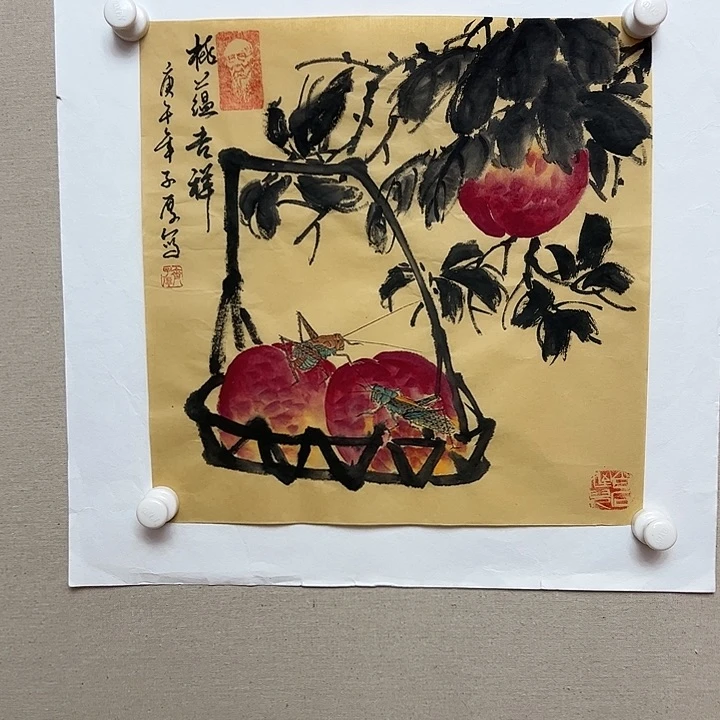 桃蕴吉祥
庚午年子厚写